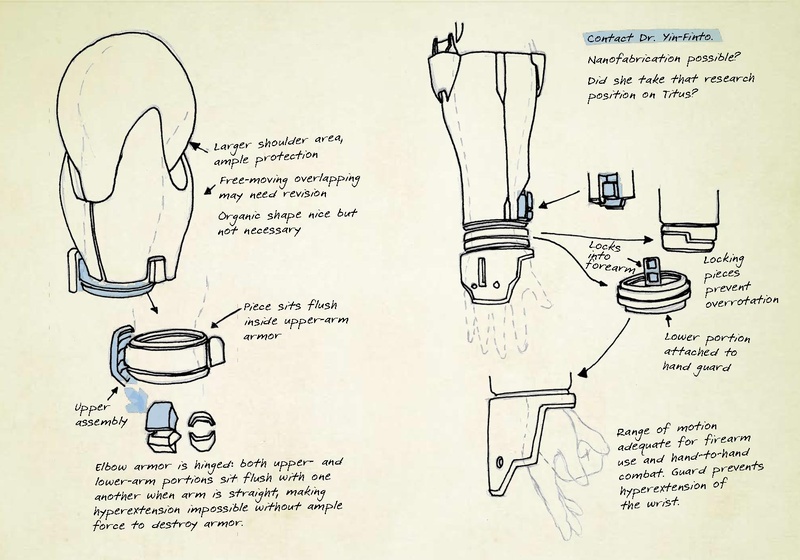 Larger shoulder area,
ample protection
Free-moving overlapping
may need revision
Organic shape nice but
not necessary
Piece sits flush
inside upper-arm
armor
Upper
assembly
Elbow armor is hinged: both upper- and
lower-arm portions sit flush with one
another when arm is straight, making
hyperextension impossible without ample
force to destroy armor.
Contact Dr. Yin-Finto.
Nanofabrication possible?
Did she take that research
position on Titus?
Locks
into
forearm
Locking
pieces
prevent
overrotation
Lower portion
attached to
hand guard
Range of motion
adequate for firearm
use and hand-to-hand
combat. Guard prevents
hyperextension of
the wrist.